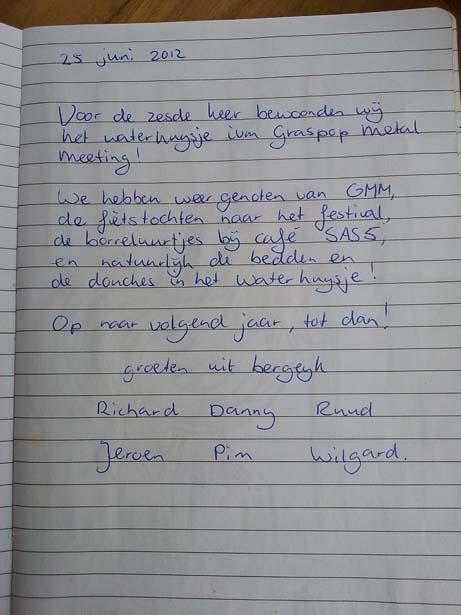 25 juni 2012
Voor de zesde keer bewoonden wij
het waterhuysje ivm Graspop metal
meeting!
We hebben weer genoten van GMM,
de fietstochten naar het festival,
de borreluurtjes bij café SAS5,
en natuurlijk de bedden en
de douches in het waterhuysje!
Op naar volgend jaar, tot dan!
groeten uit bergeyk
Richard Danny Ruud
Jeroen Pim Wilgard.